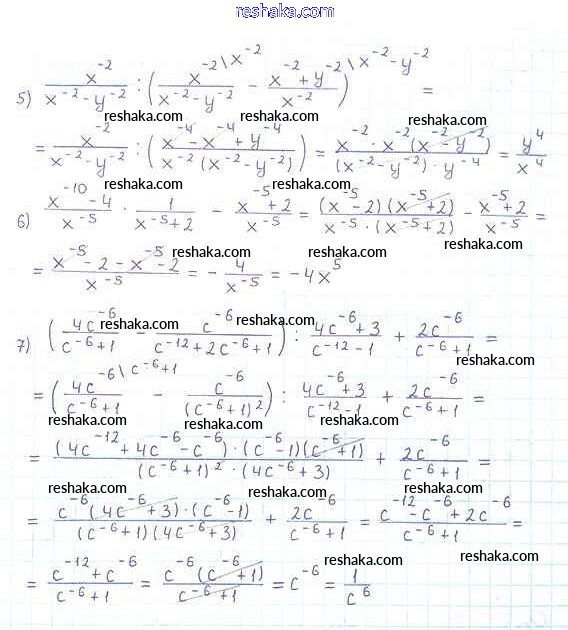 reshaka.com
5) x^-2/(x^-2 - y^-2) : (x^-2\x^-2/(x^-2 - y^-2) - (x^-2 + y^-2)\x^-2 - y^-2/x^-2) =
reshaka.com reshaka.com
= x^-2/(x^-2 - y^-2) : ((x^-4 - x^-4 + y^-4)/(x^-2 (x^-2 - y^-2))) = (x^-2 · x^-2 (x^-2 - y^-2))/((x^-2 - y^-2) · y^-4) = y^4/x^4
reshaka.com reshaka.com reshaka.com
6) (x^-10 - 4)/x^-5 · 1/(x^-5 + 2) - (x^-5 + 2)/x^-5 = ((x^-5 - 2)(x^-5 + 2))/(x^-5 · (x^-5 + 2)) - (x^-5 + 2)/x^-5 =
reshaka.com reshaka.com reshaka.com
= (x^-5 - 2 - x^-5 - 2)/x^-5 = - 4/x^-5 = -4x^5
reshaka.com
7) (4c^-6/(c^-6 + 1) - c^-6/(c^-12 + 2c^-6 + 1)) : (4c^-6 + 3)/(c^-12 - 1) + 2c^-6/(c^-6 + 1) =
reshaka.com reshaka.com reshaka.com
= (4c^-6\c^-6+1/(c^-6 + 1) - c^-6/((c^-6 + 1)^2)) : (4c^-6 + 3)/(c^-12 - 1) + 2c^-6/(c^-6 + 1) =
reshaka.com reshaka.com reshaka.com
= ((4c^-12 + 4c^-6 - c^-6) · (c^-6 - 1)(c^-6 + 1))/((c^-6 + 1)^2 · (4c^-6 + 3)) + 2c^-6/(c^-6 + 1) =
reshaka.com reshaka.com reshaka.com
= (c^-6 (4c^-6 + 3) · (c^-6 - 1))/((c^-6 + 1)(4c^-6 + 3)) + 2c^-6/(c^-6 + 1) = (c^-12 - c^-6 + 2c^-6)/(c^-6 + 1) =
reshaka.com reshaka.com reshaka.com
= (c^-12 + c^-6)/(c^-6 + 1) = (c^-6 (c^-6 + 1))/(c^-6 + 1) = c^-6 = 1/c^6
reshaka.com reshaka.com reshaka.com